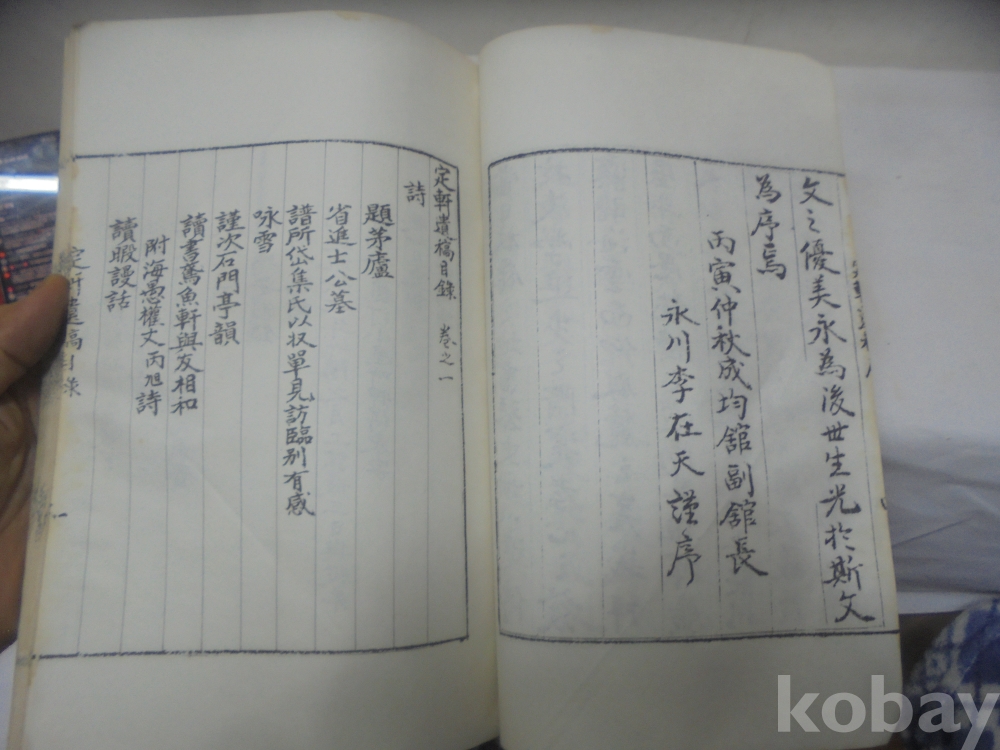 文之優美永為後世生光於斯文
為序焉
丙寅仲秋成均舘副舘長
永川李在天謹序
定軒遺稿目錄 卷之一
詩
題茅廬
省進士公墓
諸所岱集氏以収單見訪臨別有感
咏雪
謹次石門亭韻
讀書鳶魚軒與友相和
附海愚權丈丙旭詩
讀暇謾話
定軒遺稿目錄
一
kobay